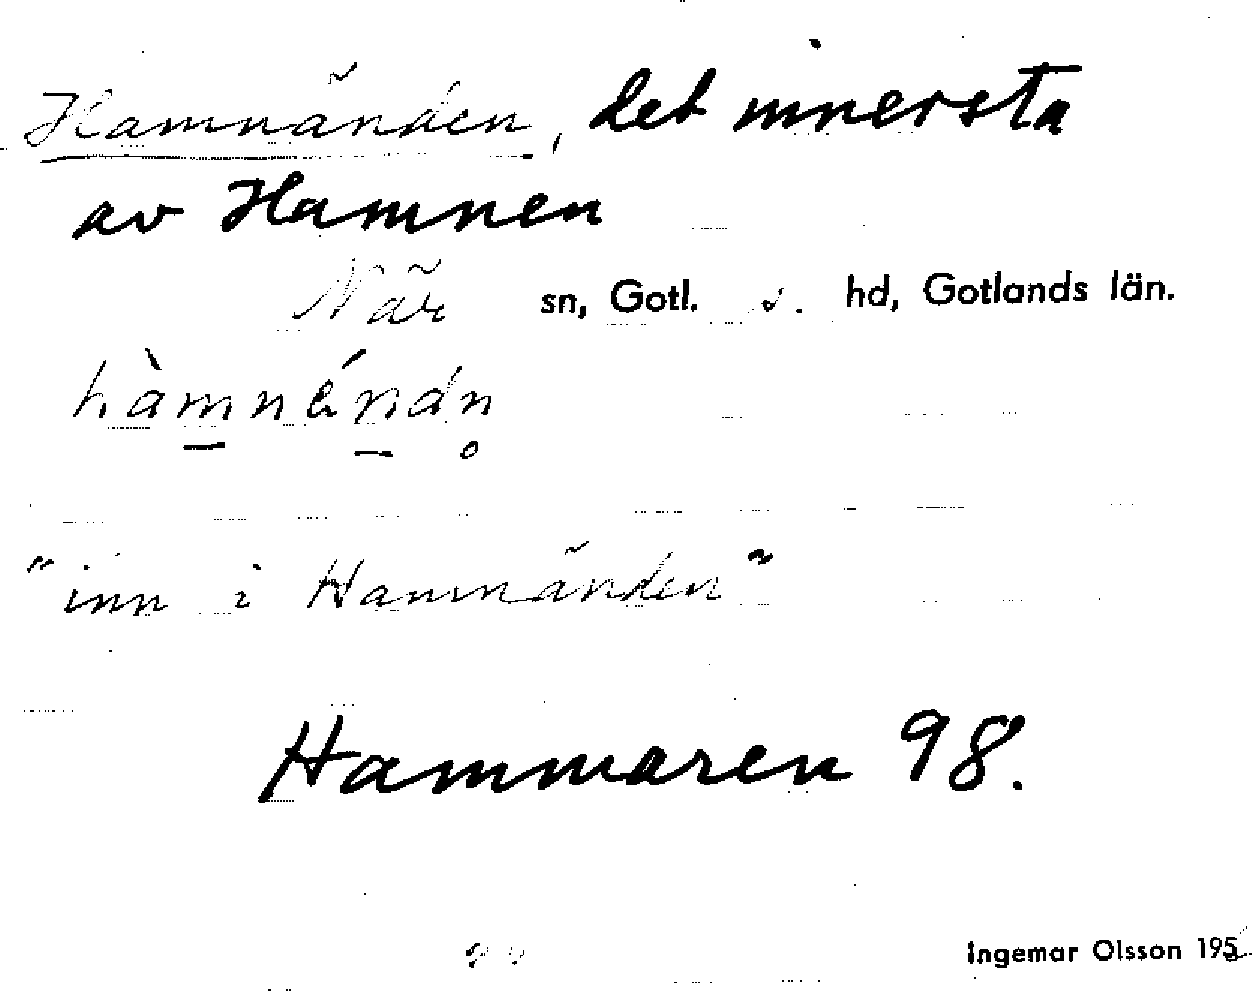 Hamnänden, det innersta
av Hamnen
När sn, Gotl. s. hd, Gotlands län.
hàmnéndn̥
"inn i Hamnänden"
Hammaren 98.
Ingemar Olsson 195